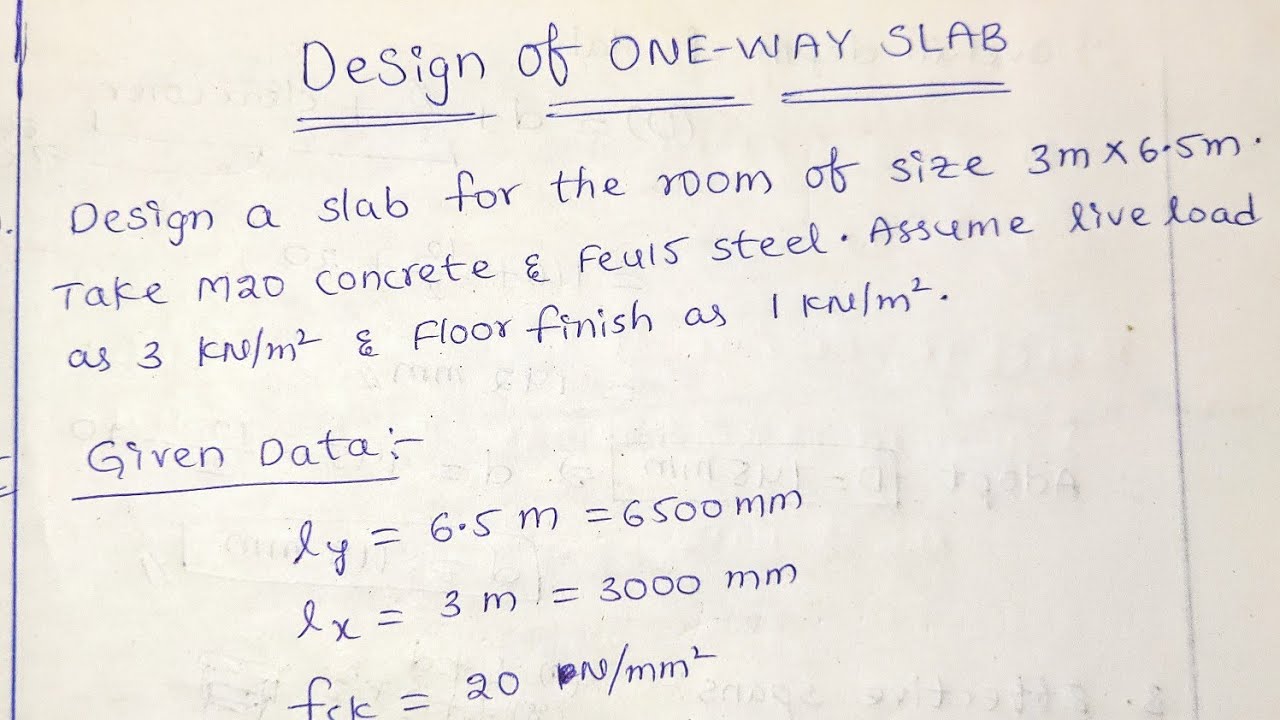 Design of ONE-WAY SLAB
Design a slab for the room of size 3m x 6.5m.
Take M20 concrete & Feu15 steel. Assume live load
as 3 KN/m² & Floor finish as 1 KN/m².
Given Data:-
ly = 6.5 m = 6500 mm
lx = 3 m = 3000 mm
fck = 20 N/mm²